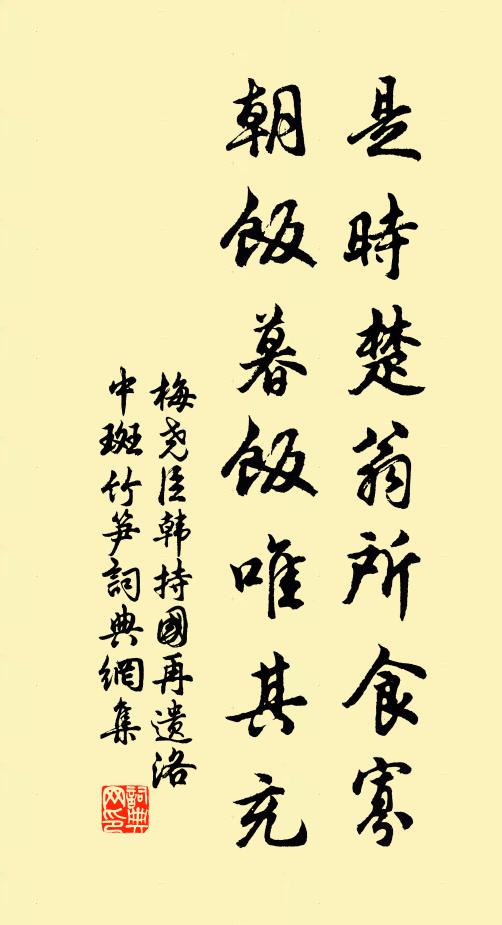 是時楚翁所食寡
朝飯暮飯唯其充
梅尧臣韩持國再遗洛
中斑竹笋詞典網集
詞典网印